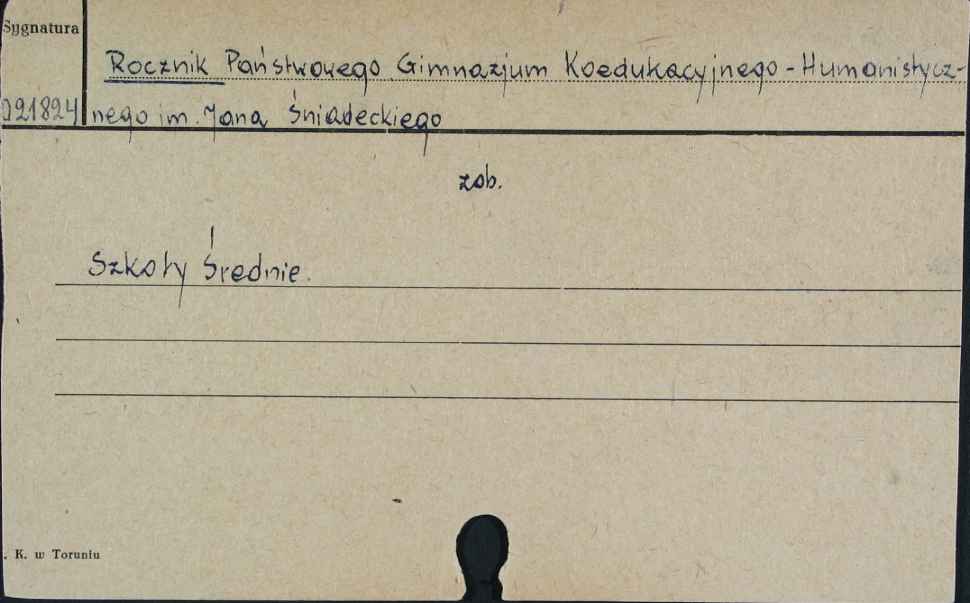 Sygnatura
Rocznik Państwowego Gimnazjum Koedukacyjnego-Humanistycz-
021824 nego im. Jana Śniadeckiego
zob.
Szkoły Średnie.
. K. w Toruniu